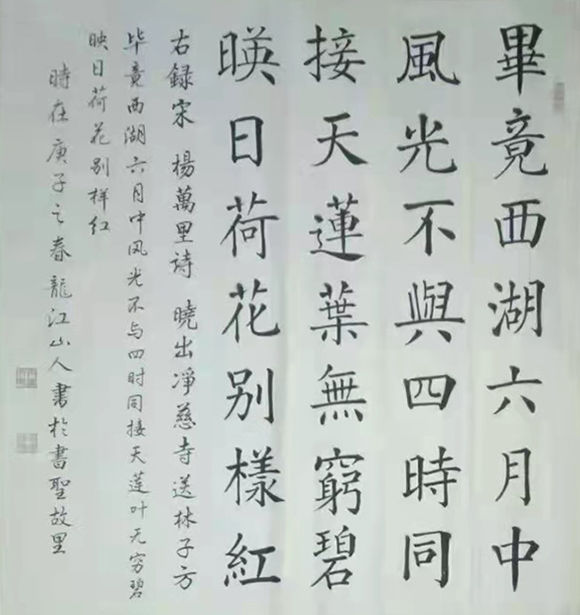 畢竟西湖六月中
風光不與四時同
接天蓮葉無窮碧
暎日荷花别樣紅
右録宋 楊萬里詩 曉出凈慈寺送林子方
毕竟西湖六月中风光不与四时同接天莲叶无穷碧
映日荷花别样红
時在庚子之春龍江山人書於書聖故里